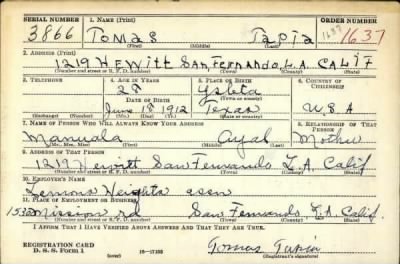 SERIAL NUMBER 1. NAME (Print) ORDER NUMBER
3866 Tomas Tapia 1637
(First) (Middle) (Last)
2. ADDRESS (Print)
1219 HEWitt San Fernando, L.A. CALIF
(Number and street or R. F. D. number) (Town) (County) (State)
3. TELEPHONE 4. AGE IN YEARS 5. PLACE OF BIRTH 6. COUNTRY OF CITIZENSHIP
28 Ysleta
DATE OF BIRTH (Town or county)
June 18 1912 Texas U.S.A
(Exchange) (Number) (Mo.) (Day) (Yr.) (State or country)
7. NAME OF PERSON WHO WILL ALWAYS KNOW YOUR ADDRESS 8. RELATIONSHIP OF THAT PERSON
Manuala Mother
(Mr., Mrs., Miss) (First) (Middle) (Last)
9. ADDRESS OF THAT PERSON
1219 Hewitt San Fernando L.A. Calif
(Number and street or R. F. D. number) (Town) (County) (State)
10. EMPLOYER'S NAME
Lemona Heights assn
11. PLACE OF EMPLOYMENT OR BUSINESS
Mission rd San Fernando L.A. Calif.
(Number and street or R. F. D. number) (Town) (County) (State)
I AFFIRM THAT I HAVE VERIFIED ABOVE ANSWERS AND THAT THEY ARE TRUE.
REGISTRATION CARD
D. S. S. Form 1 (over) 16—17105 Tomas Tapia
(Registrant's signature)